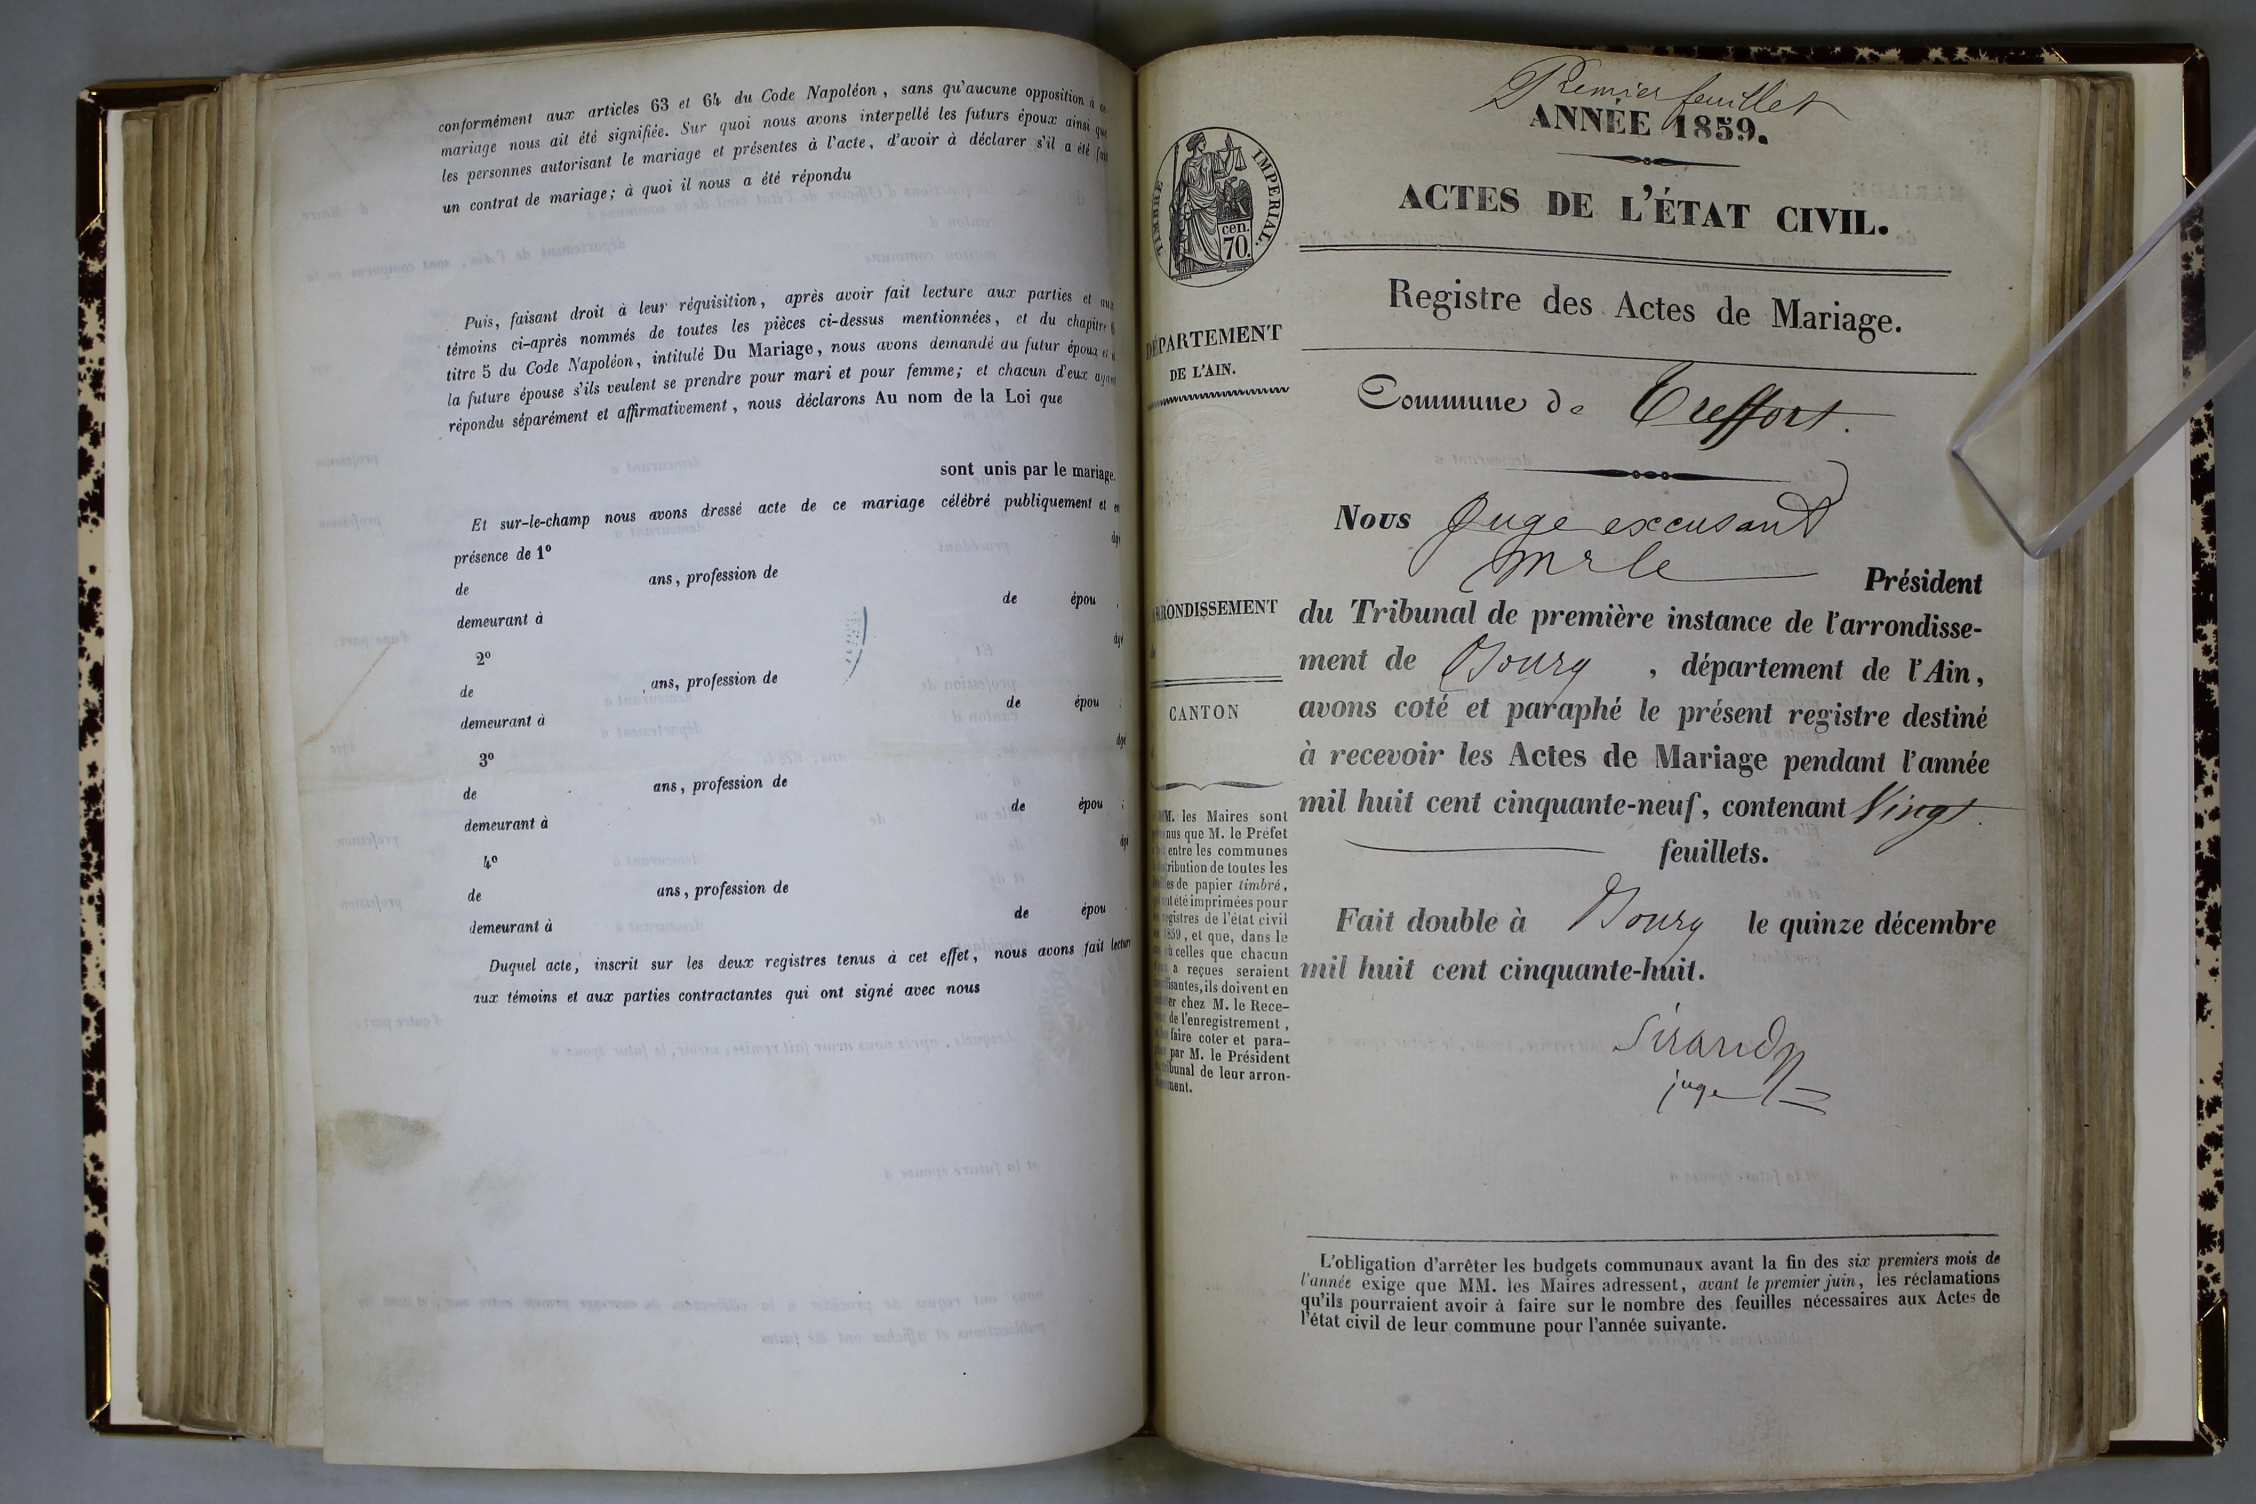 conformément aux articles 63 et 64 du Code Napoléon, sans qu'aucune opposition à ce
mariage nous ait été signifiée. Sur quoi nous avons interpellé les futurs époux ainsi que
les personnes autorisant le mariage et présentes à l'acte, d'avoir à déclarer s'il a été fait
un contrat de mariage; à quoi il nous a été répondu
Puis, faisant droit à leur réquisition, après avoir fait lecture aux parties et aux
témoins ci-après nommés de toutes les pièces ci-dessus mentionnées, et du chapitre 6
titre 5 du Code Napoléon, intitulé Du Mariage, nous avons demandé au futur époux et à
la future épouse s'ils veulent se prendre pour mari et pour femme; et chacun d'eux ayant
répondu séparément et affirmativement, nous déclarons Au nom de la Loi que
sont unis par le mariage.
Et sur-le-champ nous avons dressé acte de ce mariage célébré publiquement et en
présence de 1º âgé
de ans, profession de
demeurant à de épou ,
2º âgé
de ans, profession de
demeurant à de épou ;
3º âgé
de ans, profession de
demeurant à de épou ;
4º âgé
de ans, profession de
demeurant à de épou .
Duquel acte, inscrit sur les deux registres tenus à cet effet, nous avons fait lecture
aux témoins et aux parties contractantes qui ont signé avec nous
Premier feuillet
ANNÉE 1859.
TIMBRE IMPERIAL.
cen.
70.
ACTES DE L'ÉTAT CIVIL.
Registre des Actes de Mariage.
DÉPARTEMENT
DE L'AIN.
Commune de Treffort.
Nous Juge excusant
Mr le Président
ARRONDISSEMENT
du Tribunal de première instance de l'arrondisse-
ment de Bourg , département de l'Ain,
CANTON
avons coté et paraphé le présent registre destiné
à recevoir les Actes de Mariage pendant l'année
mil huit cent cinquante-neuf, contenant Vingt
feuillets.
Fait double à Bourg le quinze décembre
mil huit cent cinquante-huit.
Sirand
juge
MM. les Maires sont
que M. le Préfet
entre les communes
distribution de toutes les
de papier timbré,
ont été imprimées pour
registres de l'état civil
1859, et que, dans le
où celles que chacun
a reçues seraient
insuffisantes, ils doivent en
chez M. le Rece-
de l'enregistrement,
faire coter et para-
par M. le Président
tribunal de leur arron-
L'obligation d'arrêter les budgets communaux avant la fin des six premiers mois de
l'année exige que MM. les Maires adressent, avant le premier juin, les réclamations
qu'ils pourraient avoir à faire sur le nombre des feuilles nécessaires aux Actes de
l'état civil de leur commune pour l'année suivante.